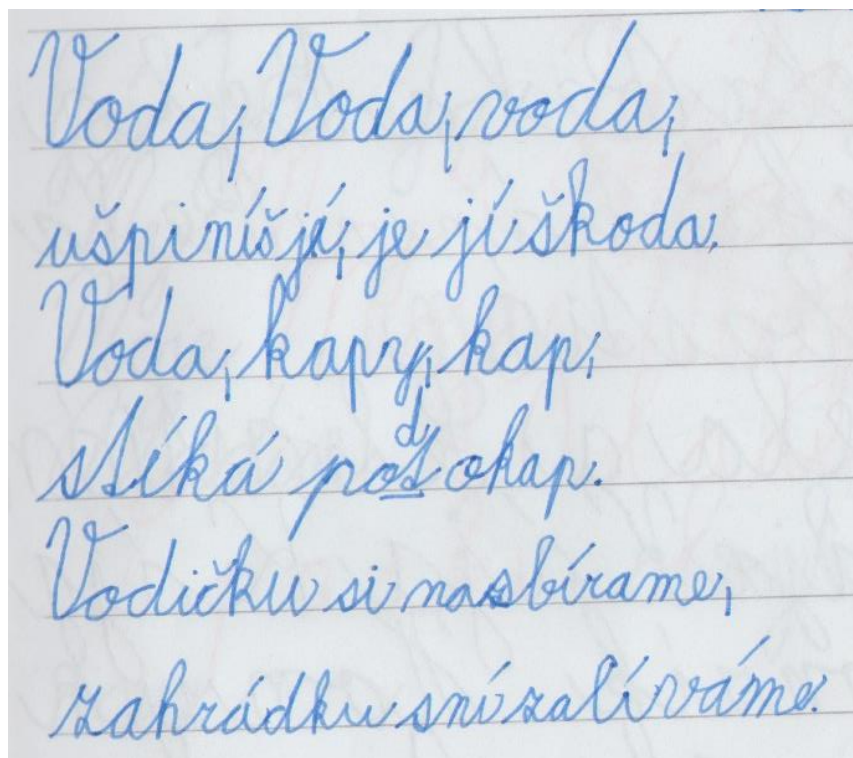 Voda, Voda, voda,
ušpiníš jí, je jí škoda.
Voda, kapy, kap,
stíká pod okap.
Vodičku si nasbírame,
zahrádku sní zalíváme.